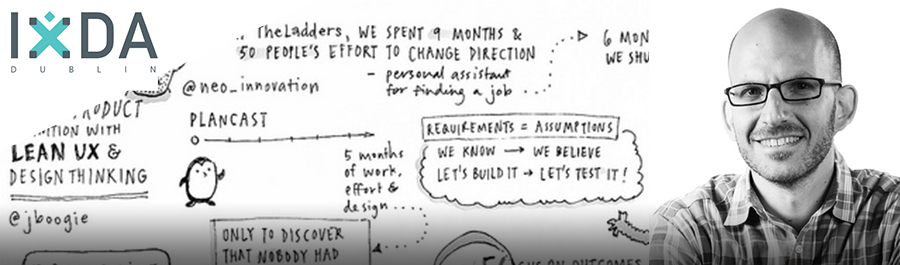 IXDA
DUBLIN
TheLadders, WE SPENT 9 MONTHS &
50 PEOPLE'S EFFORT TO CHANGE DIRECTION
- personal assistant
for finding a job
6 MON
WE SHU
@neo_innovation
PRODUCT
WITH
LEAN UX &
DESIGN THINKING
@jboogie
PLANCAST
5 months
of work,
effort &
design
ONLY TO DISCOVER
THAT NOBODY HAD
REQUIREMENTS = ASSUMPTIONS
WE KNOW → WE BELIEVE
LET'S BUILD IT → LET'S TEST IT!
ON OUTCOMES